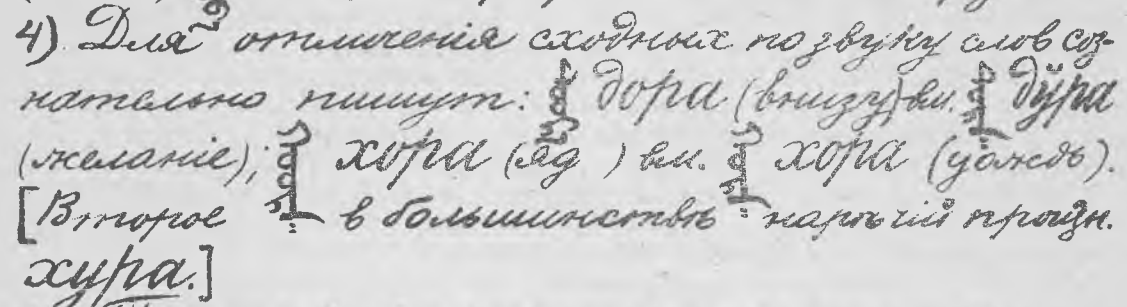 4) Для отличенія сходных по звуку слов соз-
нательно пишут: дора (внизу) вм. дӱра
(желаніе); хора (яд ) вм. хора (дождь).
[Второе в большинствѣ нарѣчій произн.
хура.]